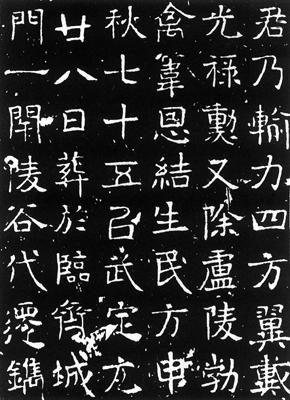 君乃輸力四方翼戴
光祿勳又除盧陵勃
禽韋恩結生民方申
秋七十五以武定元
廿八日葬於臨齊城
門一閉陵谷代遷鐫